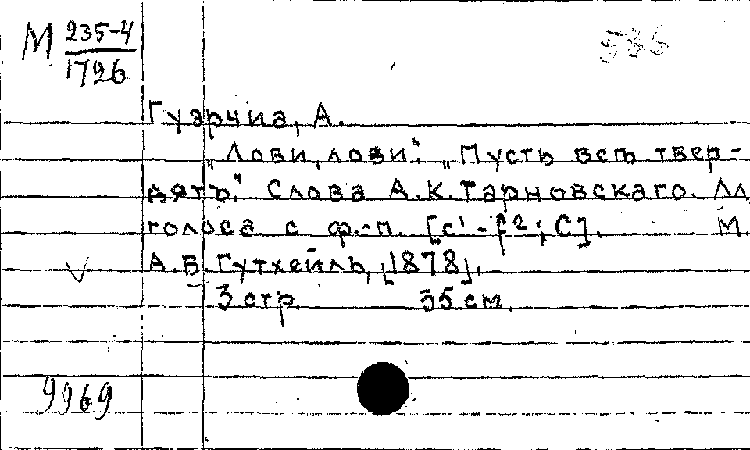 М 235-4
1796
Гуарчиа, А.
„Лови, лови“. „Пусть всѣ твер-
дятъ.“ Слова А.К. Тарновскаго. Дл
голоса с ф.-п. [c¹-f²; C]. М.
А.Б. Гутхейль, [1878].
3 стр 35 см.
9969